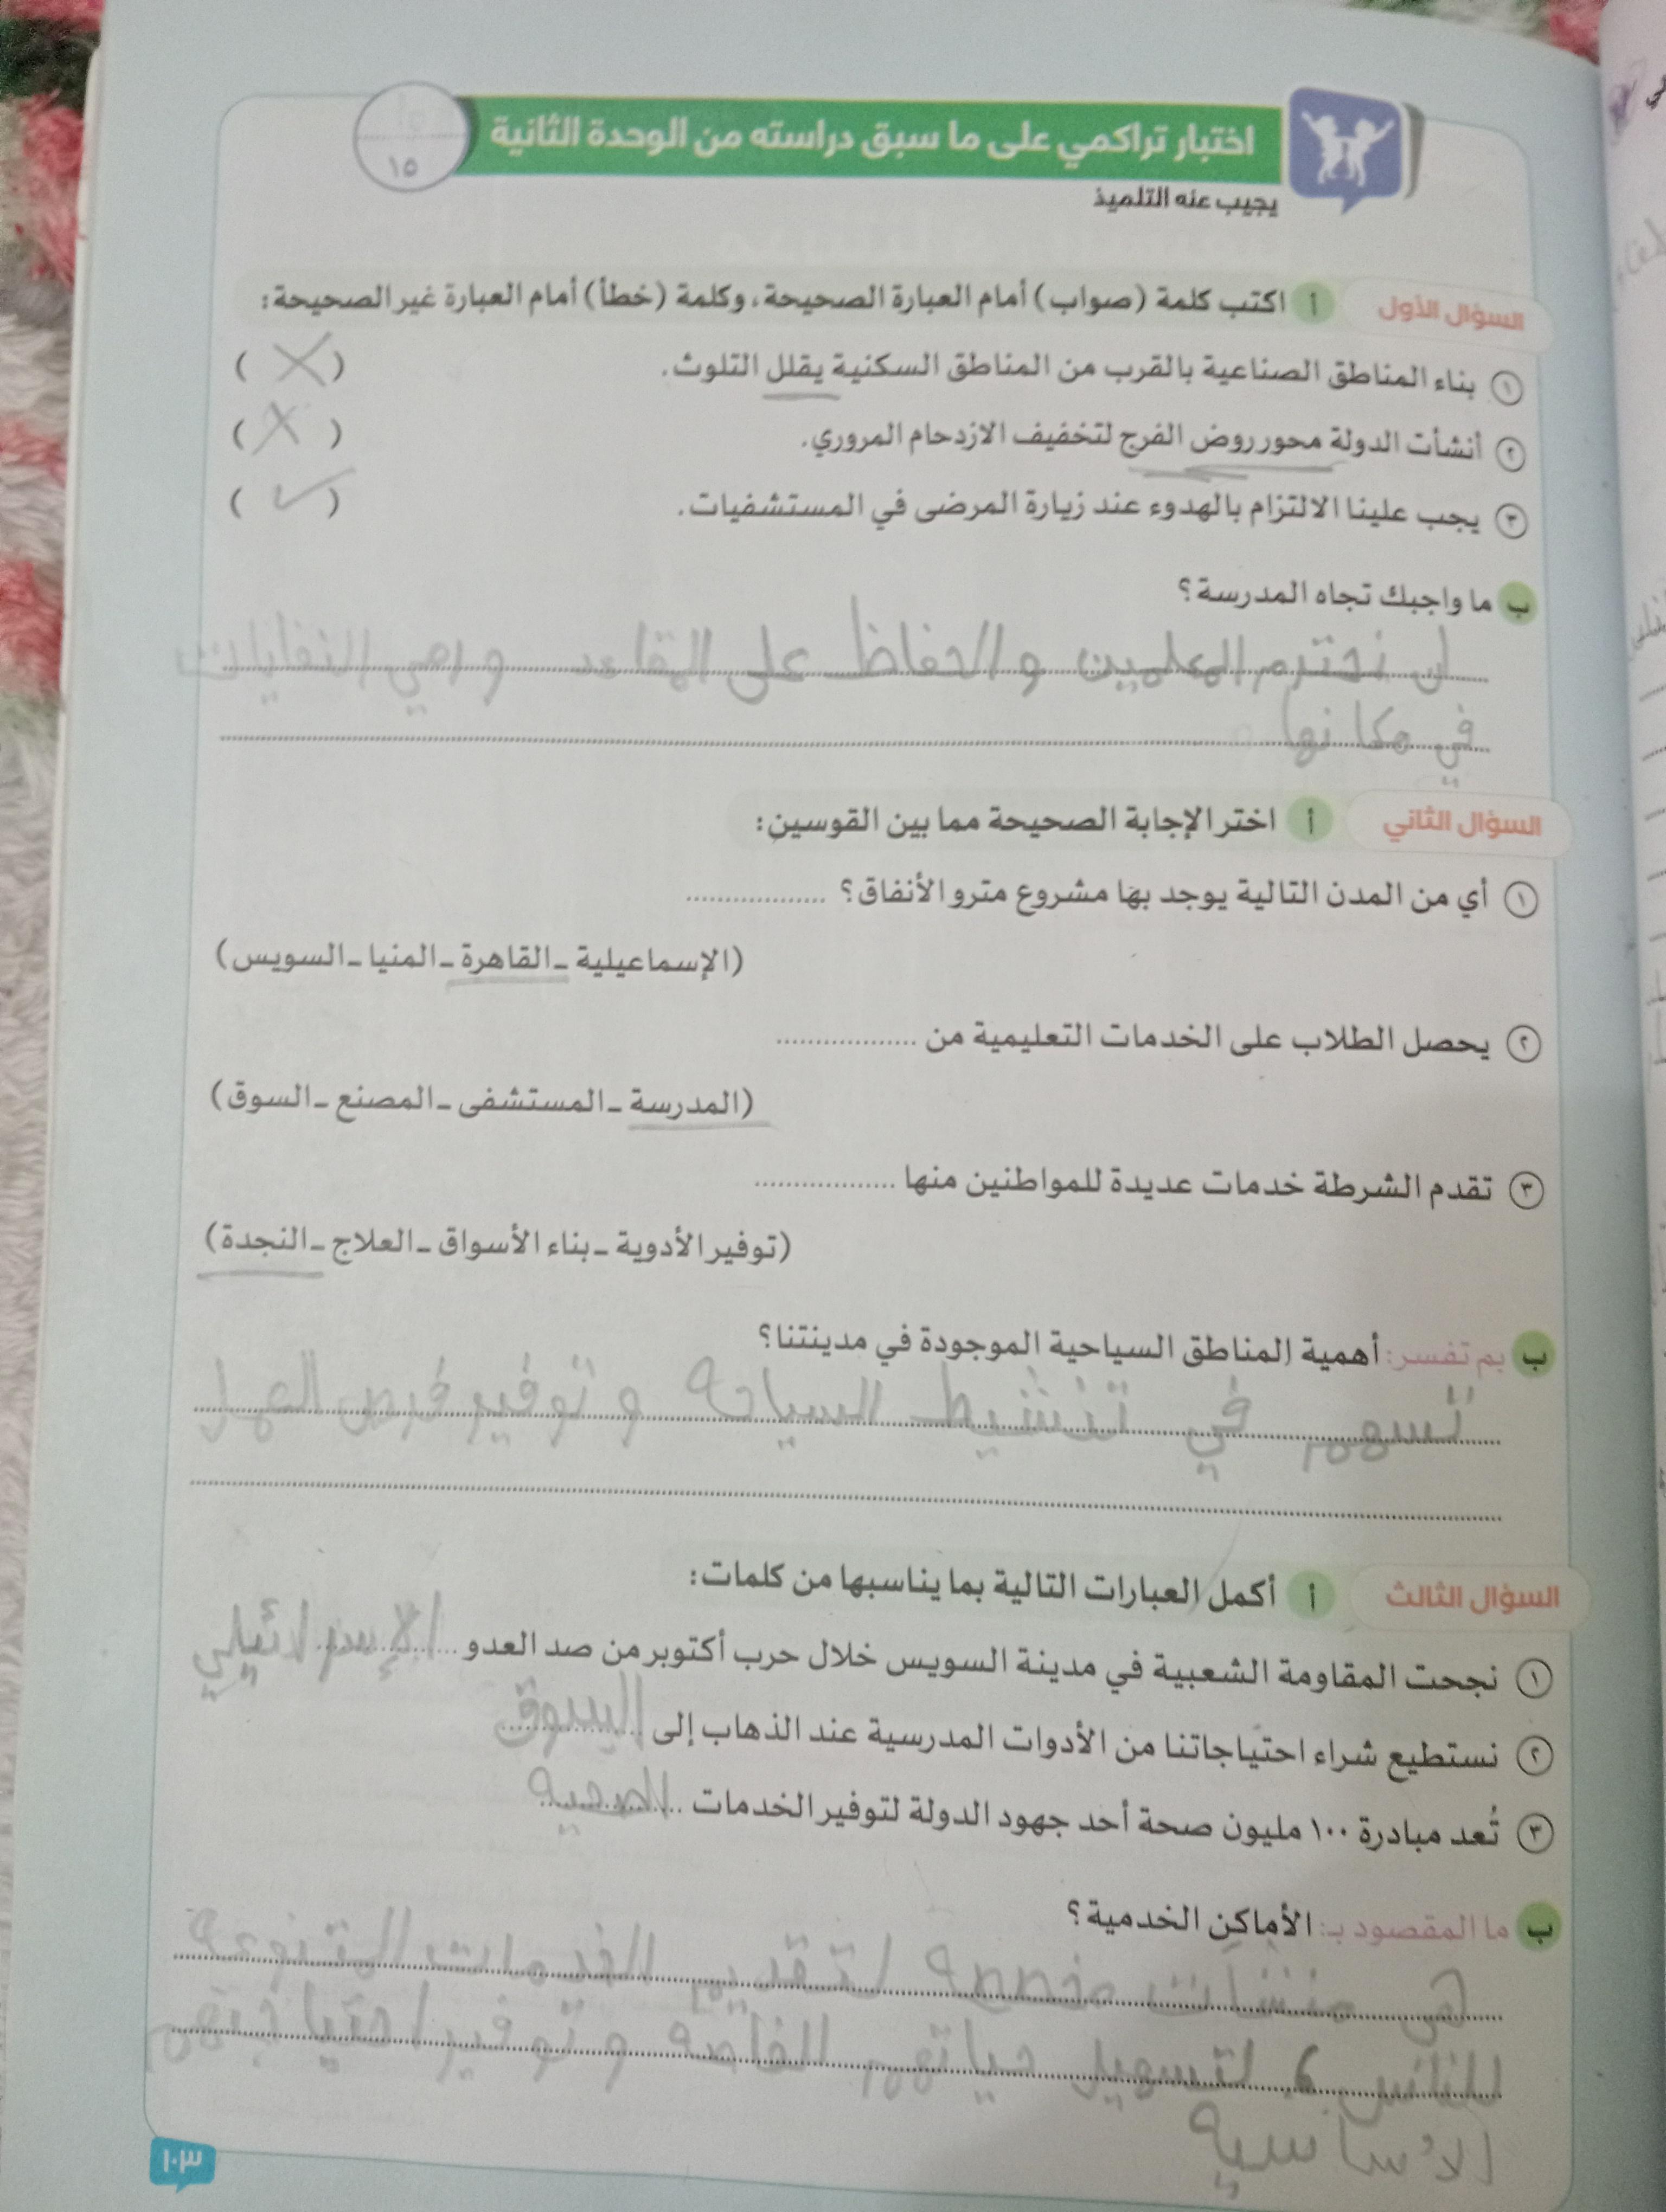 اختبار تراكمي على ما سبق دراسته من الوحدة الثانية
١٥
يجيب عنه التلميذ
السؤال الأول أ اكتب كلمة (صواب) أمام العبارة الصحيحة، وكلمة (خطأ) أمام العبارة غير الصحيحة:
١ بناء المناطق الصناعية بالقرب من المناطق السكنية يقلل التلوث. (X)
٢ أنشأت الدولة محور روض الفرج لتخفيف الازدحام المروري. (X)
٣ يجب علينا الالتزام بالهدوء عند زيارة المرضى في المستشفيات. (✓)
ب ما واجبك تجاه المدرسة؟
نحترم المعلمين والحفاظ على المقاعد ورمي النفايات
في مكانها
السؤال الثاني أ اختر الإجابة الصحيحة مما بين القوسين:
١ أي من المدن التالية يوجد بها مشروع مترو الأنفاق؟ ..................
(الإسماعيلية - القاهرة - المنيا - السويس)
٢ يحصل الطلاب على الخدمات التعليمية من ..................
(المدرسة - المستشفى - المصنع - السوق)
٣ تقدم الشرطة خدمات عديدة للمواطنين منها ..................
(توفير الأدوية - بناء الأسواق - العلاج - النجدة)
ب بم تفسر: أهمية المناطق السياحية الموجودة في مدينتنا؟
تسهم في تنشيط السياحة و توفير فرص العمل
السؤال الثالث أ أكمل العبارات التالية بما يناسبها من كلمات:
١ نجحت المقاومة الشعبية في مدينة السويس خلال حرب أكتوبر من صد العدو الإسرائيلي
٢ نستطيع شراء احتياجاتنا من الأدوات المدرسية عند الذهاب إلى السوق
٣ تُعد مبادرة ١٠٠ مليون صحة أحد جهود الدولة لتوفير الخدمات الصحية
ب ما المقصود بـ: الأماكن الخدمية؟
هي منشات مخصصة لتقديم الخدمات المتنوعة
للناس لتسهيل حياتهم الخاصة و توفير احتياجتهم
الأساسية
١٠٣